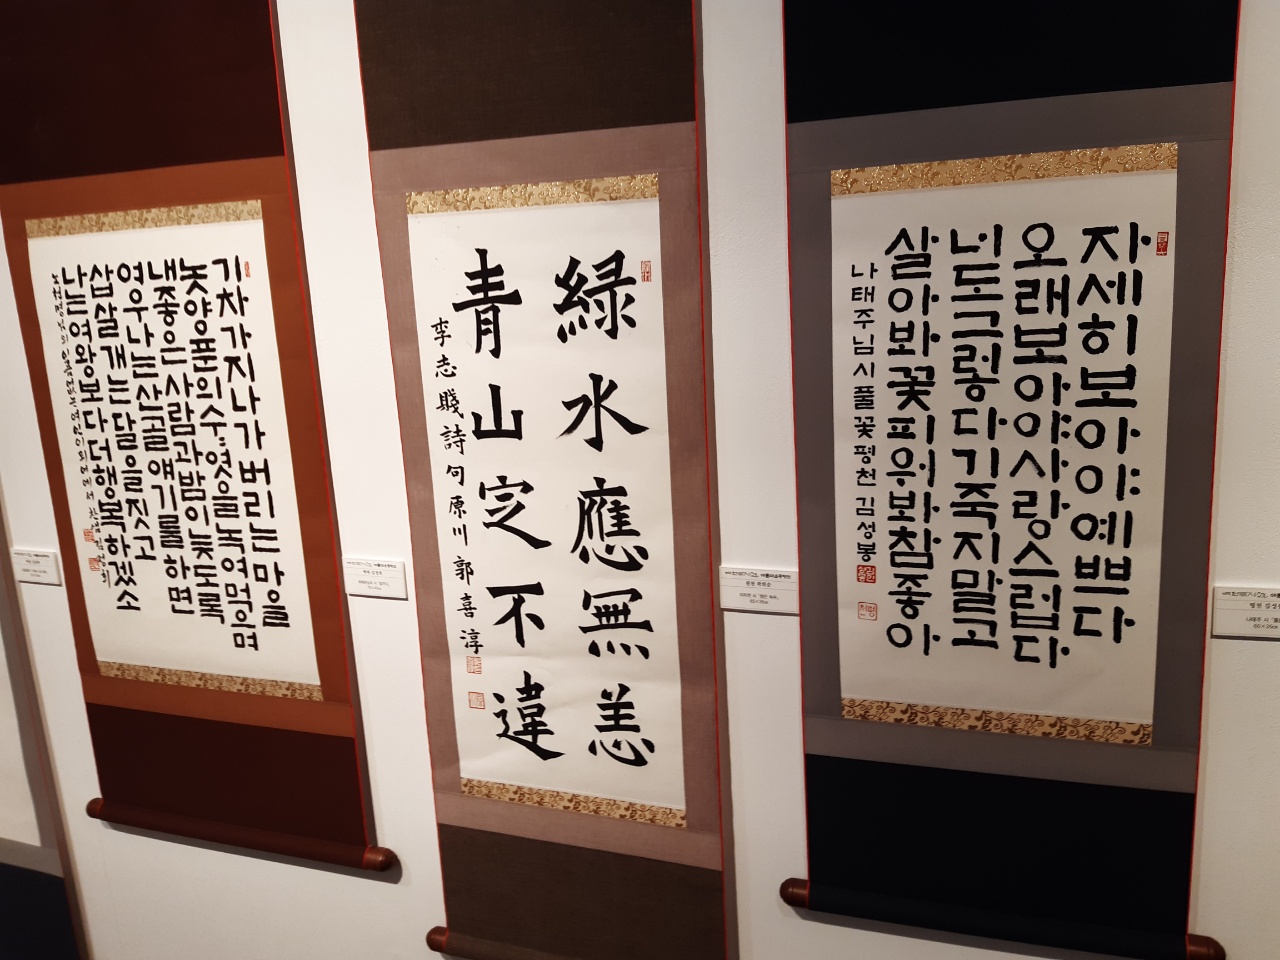 자세히보아야예쁘다
오래보아야사랑스럽다
너도그렇다기죽지말고
살아봐꽃피워봐참좋아
나태주님시풀꽃평천김성봉
綠水應無恙
靑山定不違
李志賤詩句原川郭喜淳
기차가지나가버리는마을
놋양푼의수수엿을녹여먹으며
내좋은사람과밤이늦도록
여우나는산골얘기를하면
삽살개는달을짓고
나는여왕보다더행복하겠소